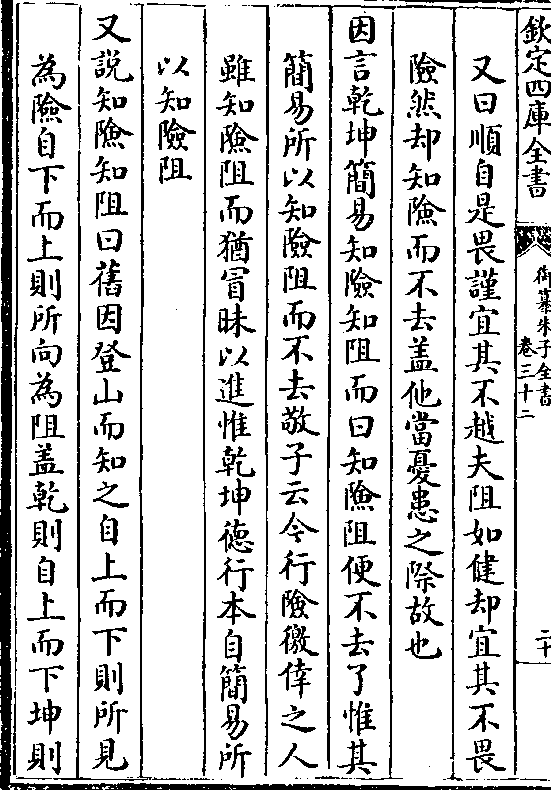 欽定四庫全書
御纂朱子全書
卷三十二
二十
又曰順自是畏謹宜其不越夫阻如健却宜其不畏
險然却知險而不去盖他當憂患之際故也
因言乾坤簡易知險知阻而曰知險阻便不去了惟其
簡易所以知險阻而不去敬子云今行險徼倖之人
雖知險阻而猶冒昧以進惟乾坤德行本自簡易所
以知險阻
又説知險知阻曰舊因登山而知之自上而下則所見
為險自下而上則所向為阻盖乾則自上而下坤則